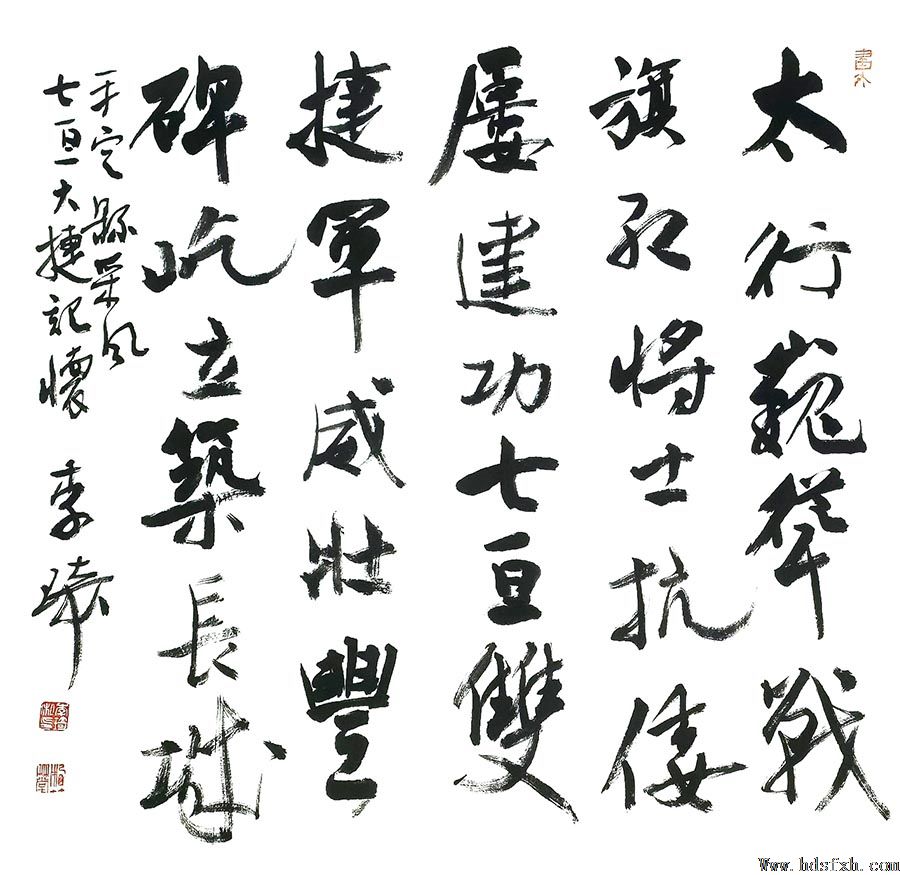 太行巍聳戰
旗红将士抗倭
屢建功七亘雙
捷軍威壯豐
碑屹立築長城
平定縣采风
七亘大捷記懷 李
Www.hdsfxh.com